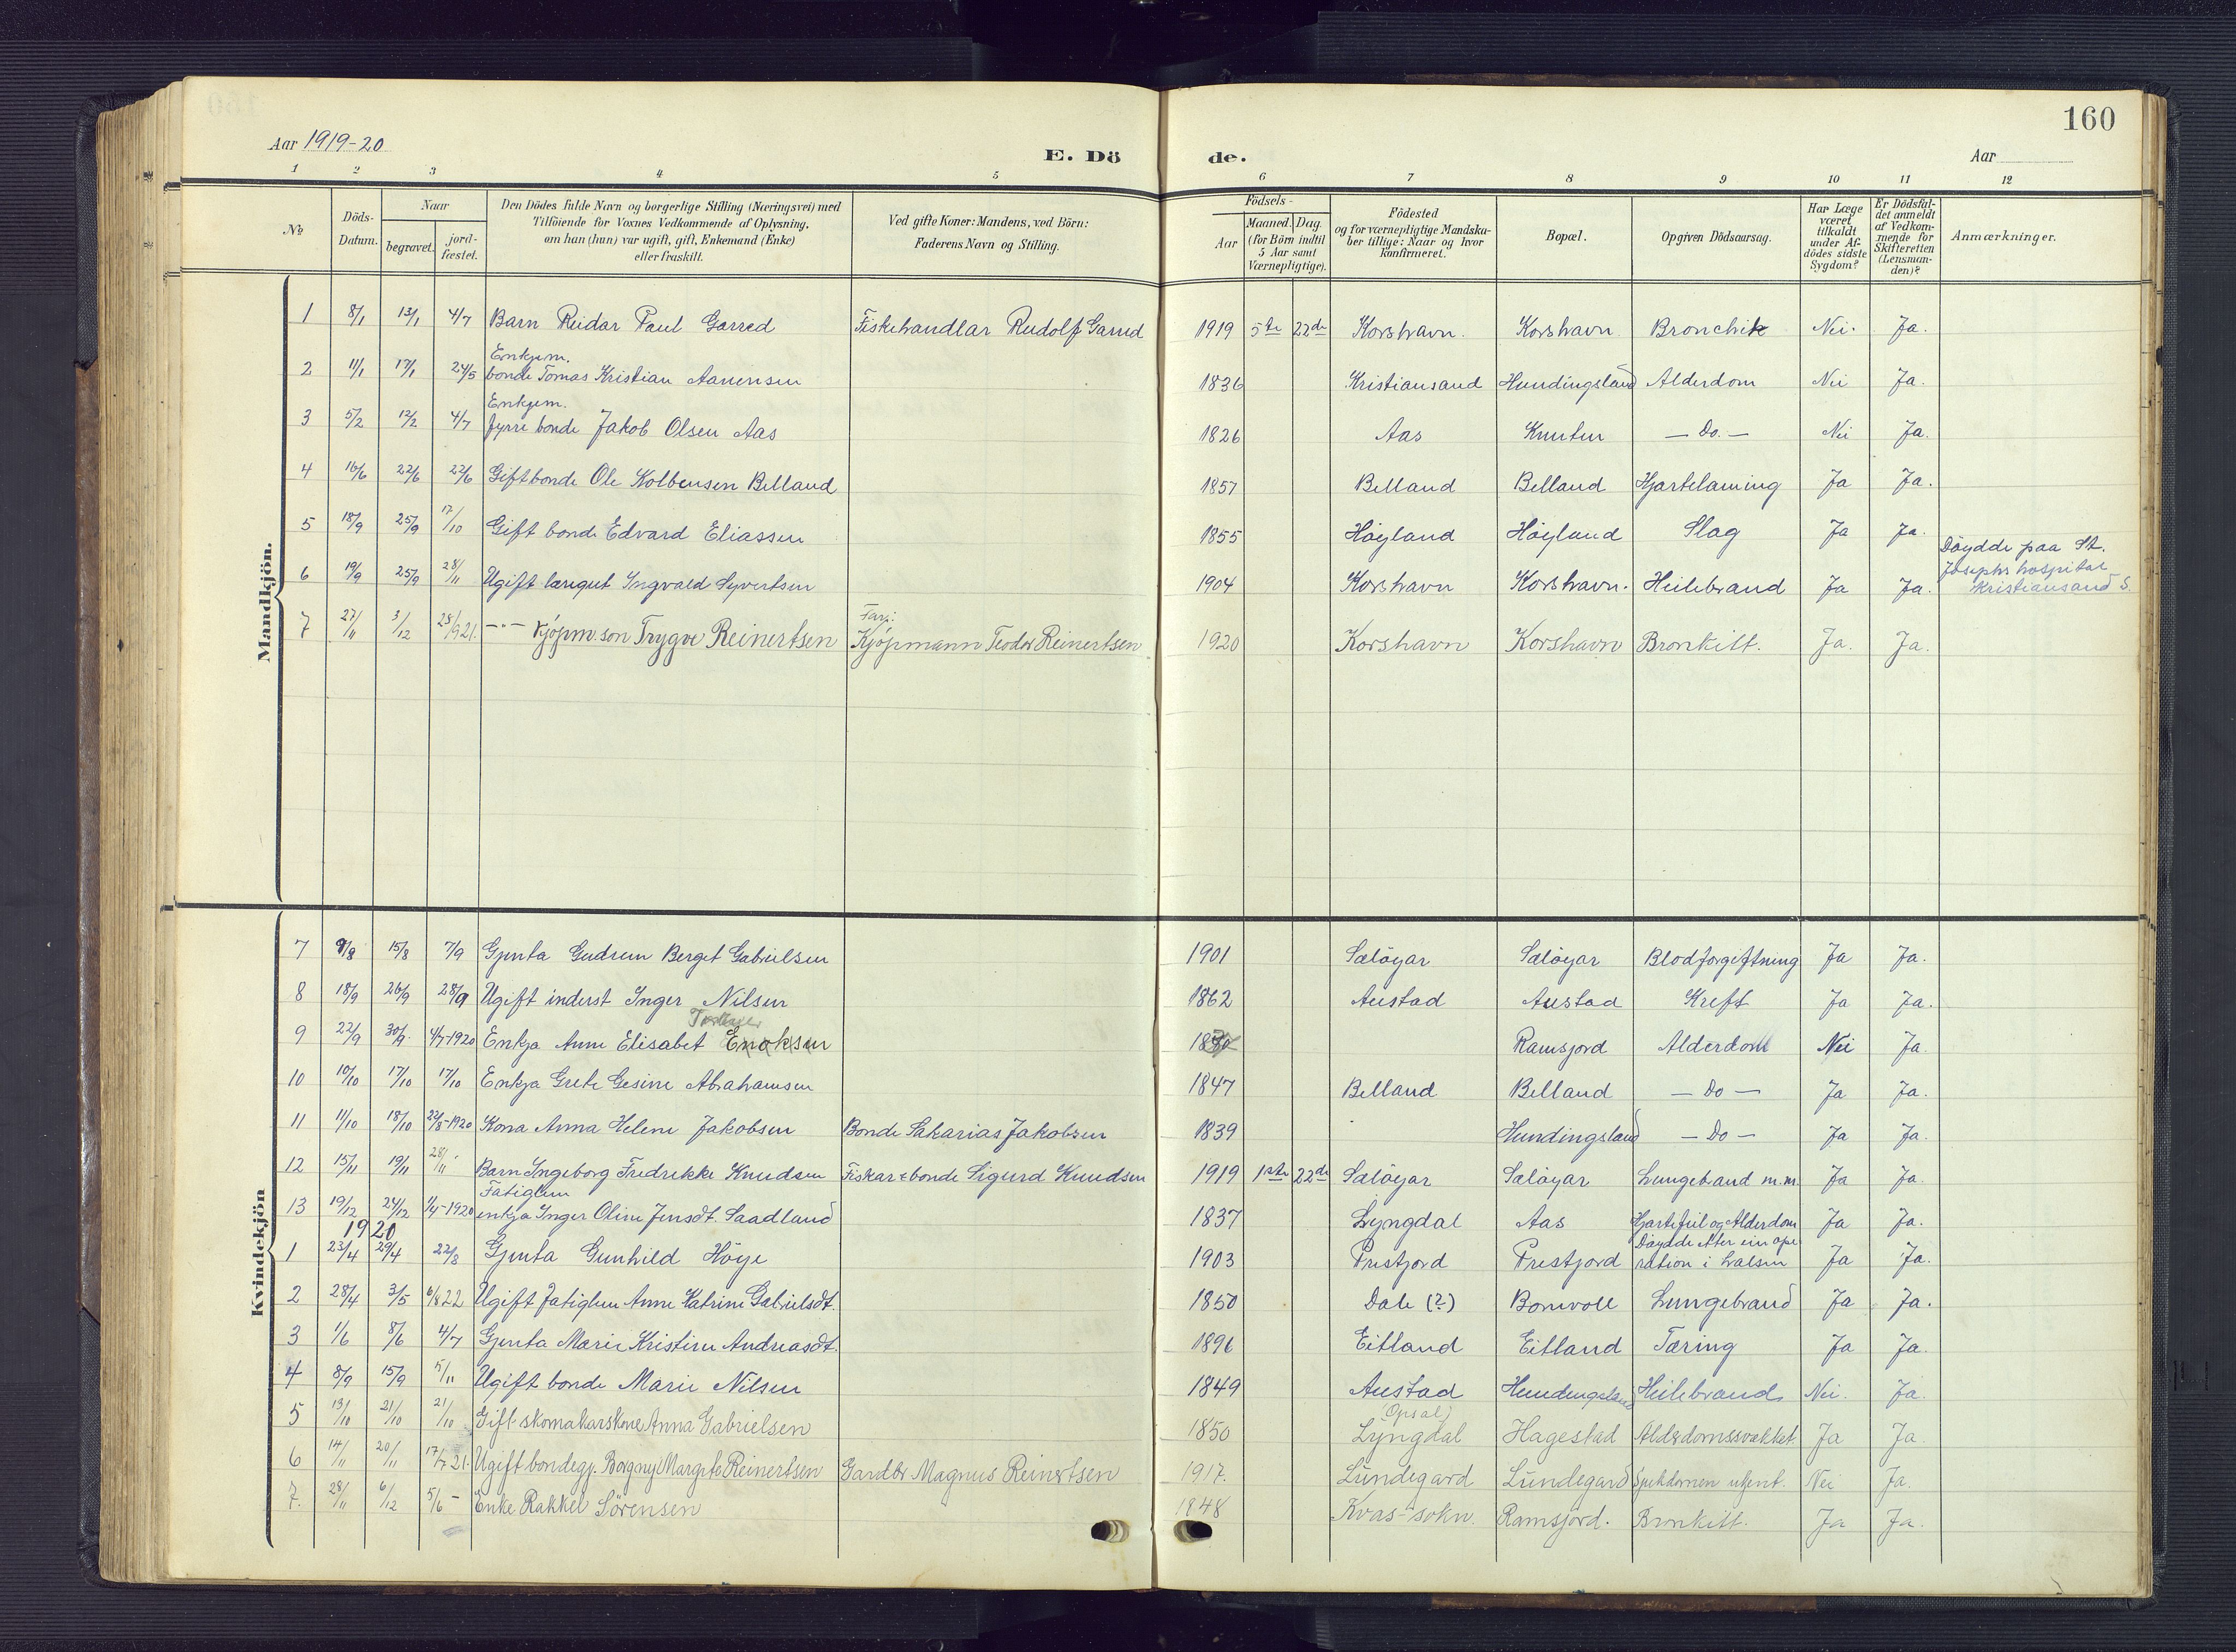 160
Aar 1919-20
E. Dö
de.
Aar
1 2 3 4 5 6 7 8 9 10 11 12
№
Döds-Datum.
Naar
begravet.
jord-fæstet.
Den Dödes fulde Navn og borgerlige Stilling (Næringsvei) med
Tilföiende for Voxnes Vedkommende af Oplysning,
om han (hun) var ugift, gift, Enkemand (Enke)
eller fraskilt.
Ved gifte Koner: Mandens, ved Börn:
Faderens Navn og Stilling.
Födsels-
Aar
Maaned. Dag.
(for Börn indtil
5 Aar samt
Værnepligtige).
Födested
og for værnepligtige Mandska-
ber tillige: Naar og hvor
konfirmeret.
Bopæl.
Opgiven Dödsaarsag.
Har Læge
været
tilkaldt
under Af-
dödes sidste
Sygdom?
Er Dödsfal-
det anmeldt
af Vedkom-
mende for
Skifteretten
(Lensman-
den)?
Anmærkninger.
Mandkjön.
1 8/1 13/1 4/7 Barn Reidar Paul Garred Fiskehandlar Rudolf Garred 1919 5te 22de Korshavn. Korshavn Bronchit Nei. Ja.
Enkjem.
2 11/1 17/1 24/5 bonde Tomas Kristian Aanensen 1836 Kristiansand Hundingsland Alderdom Nei Ja.
Enkjem.
3 5/2 12/2 4/7 fyrre bonde Jakob Olsen Aas 1826 Aas – Do. – Nei Ja.
4 16/6 22/6 22/6 Gift bonde Ole Kolbensen Belland 1857 Belland Belland Hjartelaming Ja Ja.
5 18/9 25/9 17/10 Gift bonde Edvard Eliassen 1855 Höyland Höyland Slag Ja Ja.
6 19/9 25/9 28/11 Ugift læregut Ingvald Syvertsen 1904 Korshavn Korshavn. Heilebrand Ja Ja. Döydde paa St.
Josephs hospital
Kristiansand S.
Far:
7 27/11 3/12 28/9 21. –"– kjöpm. son Trygve Reinertsen Kjöpmann Teodor Reinertsen 1920 Korshavn Korshavn Bronkitt. Ja. Ja.
Kvindekjön
7 9/8 15/8 7/9 Gjenta Gudrun Berget Gabrielsen 1901 Salöyar Salöyar Blodforgiftning Ja Ja.
8 18/9 26/9 28/9 Ugift inderst Inger Nilsen 1862 Austad Austad Kreft Ja Ja.
9 22/9 30/9 4/7-1920 Enkja Anne Elisabet Enoksen Ramsjord Alderdom Nei Ja.
10 10/10 17/10 17/10 Enkja Grete Gesine Abrahamsen 1847 Belland Belland – Do – Ja Ja.
11 11/10 18/10 22/8-1920 Kona Anna Helene Jakobsen Bonde Sakarias Jakobsen 1839 Hundingsland – Do – Ja Ja.
12 15/11 19/11 28/11 Barn Ingeborg Fredrekke Knudsen Fiskar & bonde Sigurd Knudsen 1919 1ste 22de Salöyar Salöyar Lungebrand m.m. Ja Ja.
Fatiglem
13 19/12 24/12 1/4-1920 enkja Inger Oline Jensdt. Saadland 1837 Lyngdal Aas Hjartefeil og Alderdom Ja Ja.
1920
Döydde etter ein ope-
1 23/4 29/4 22/8 Gjenta Gunhild Höye 1903 Prestjord Prestjord ration i halsen Ja Ja.
2 28/4 3/5 6/8 22 Ugift Fatiglem Anne Katrine Gabrielsdt. 1850 Dale (?) Bomvoll Lungebrand Ja Ja.
3 1/6 8/6 4/7 Gjenta Marie Kristine Andreasdt. 1896 Eitland Eitland Tæring Ja Ja.
4 8/9 15/9 5/11 Ugift bonde Marie Nilsen 1849 Austad Hundingsland Heilebrand Nei. Ja.
(Opsal)
5 13/10 21/10 21/10 Gift skomakarskone Anna Gabrielsen 1850 Lyngdal Hagestad Alderdomssvækket Ja Ja.
6 14/11 20/11 17/7 21. Ugift bondegj. Borgny Margete Reinertsen Gardbr. Magnus Reinertsen 1917. Lundegard Lundegard Sjukdomen ukjent. Nei Ja.
7. 28/11 6/12 5/6 – Enke Rakkel Sörensen 1848 Kvas-sokn. Ramsjord. Bronkitt. Ja Ja.